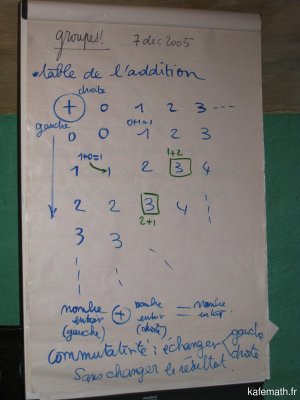 groupes! 7 dec 2005
• table de l'addition
droite
+ 0 1 2 3 ....
gauche
0+1=1
0 0 1 2 3
1+0=1 1+2
1 1 2 3 4
2 2 3 4
2+1
3 3
nombre entier (gauche) + nombre entier (droite) = nombre entier.
commutativité : echanger gauche droite
sans changer le résultat
kafemath.fr